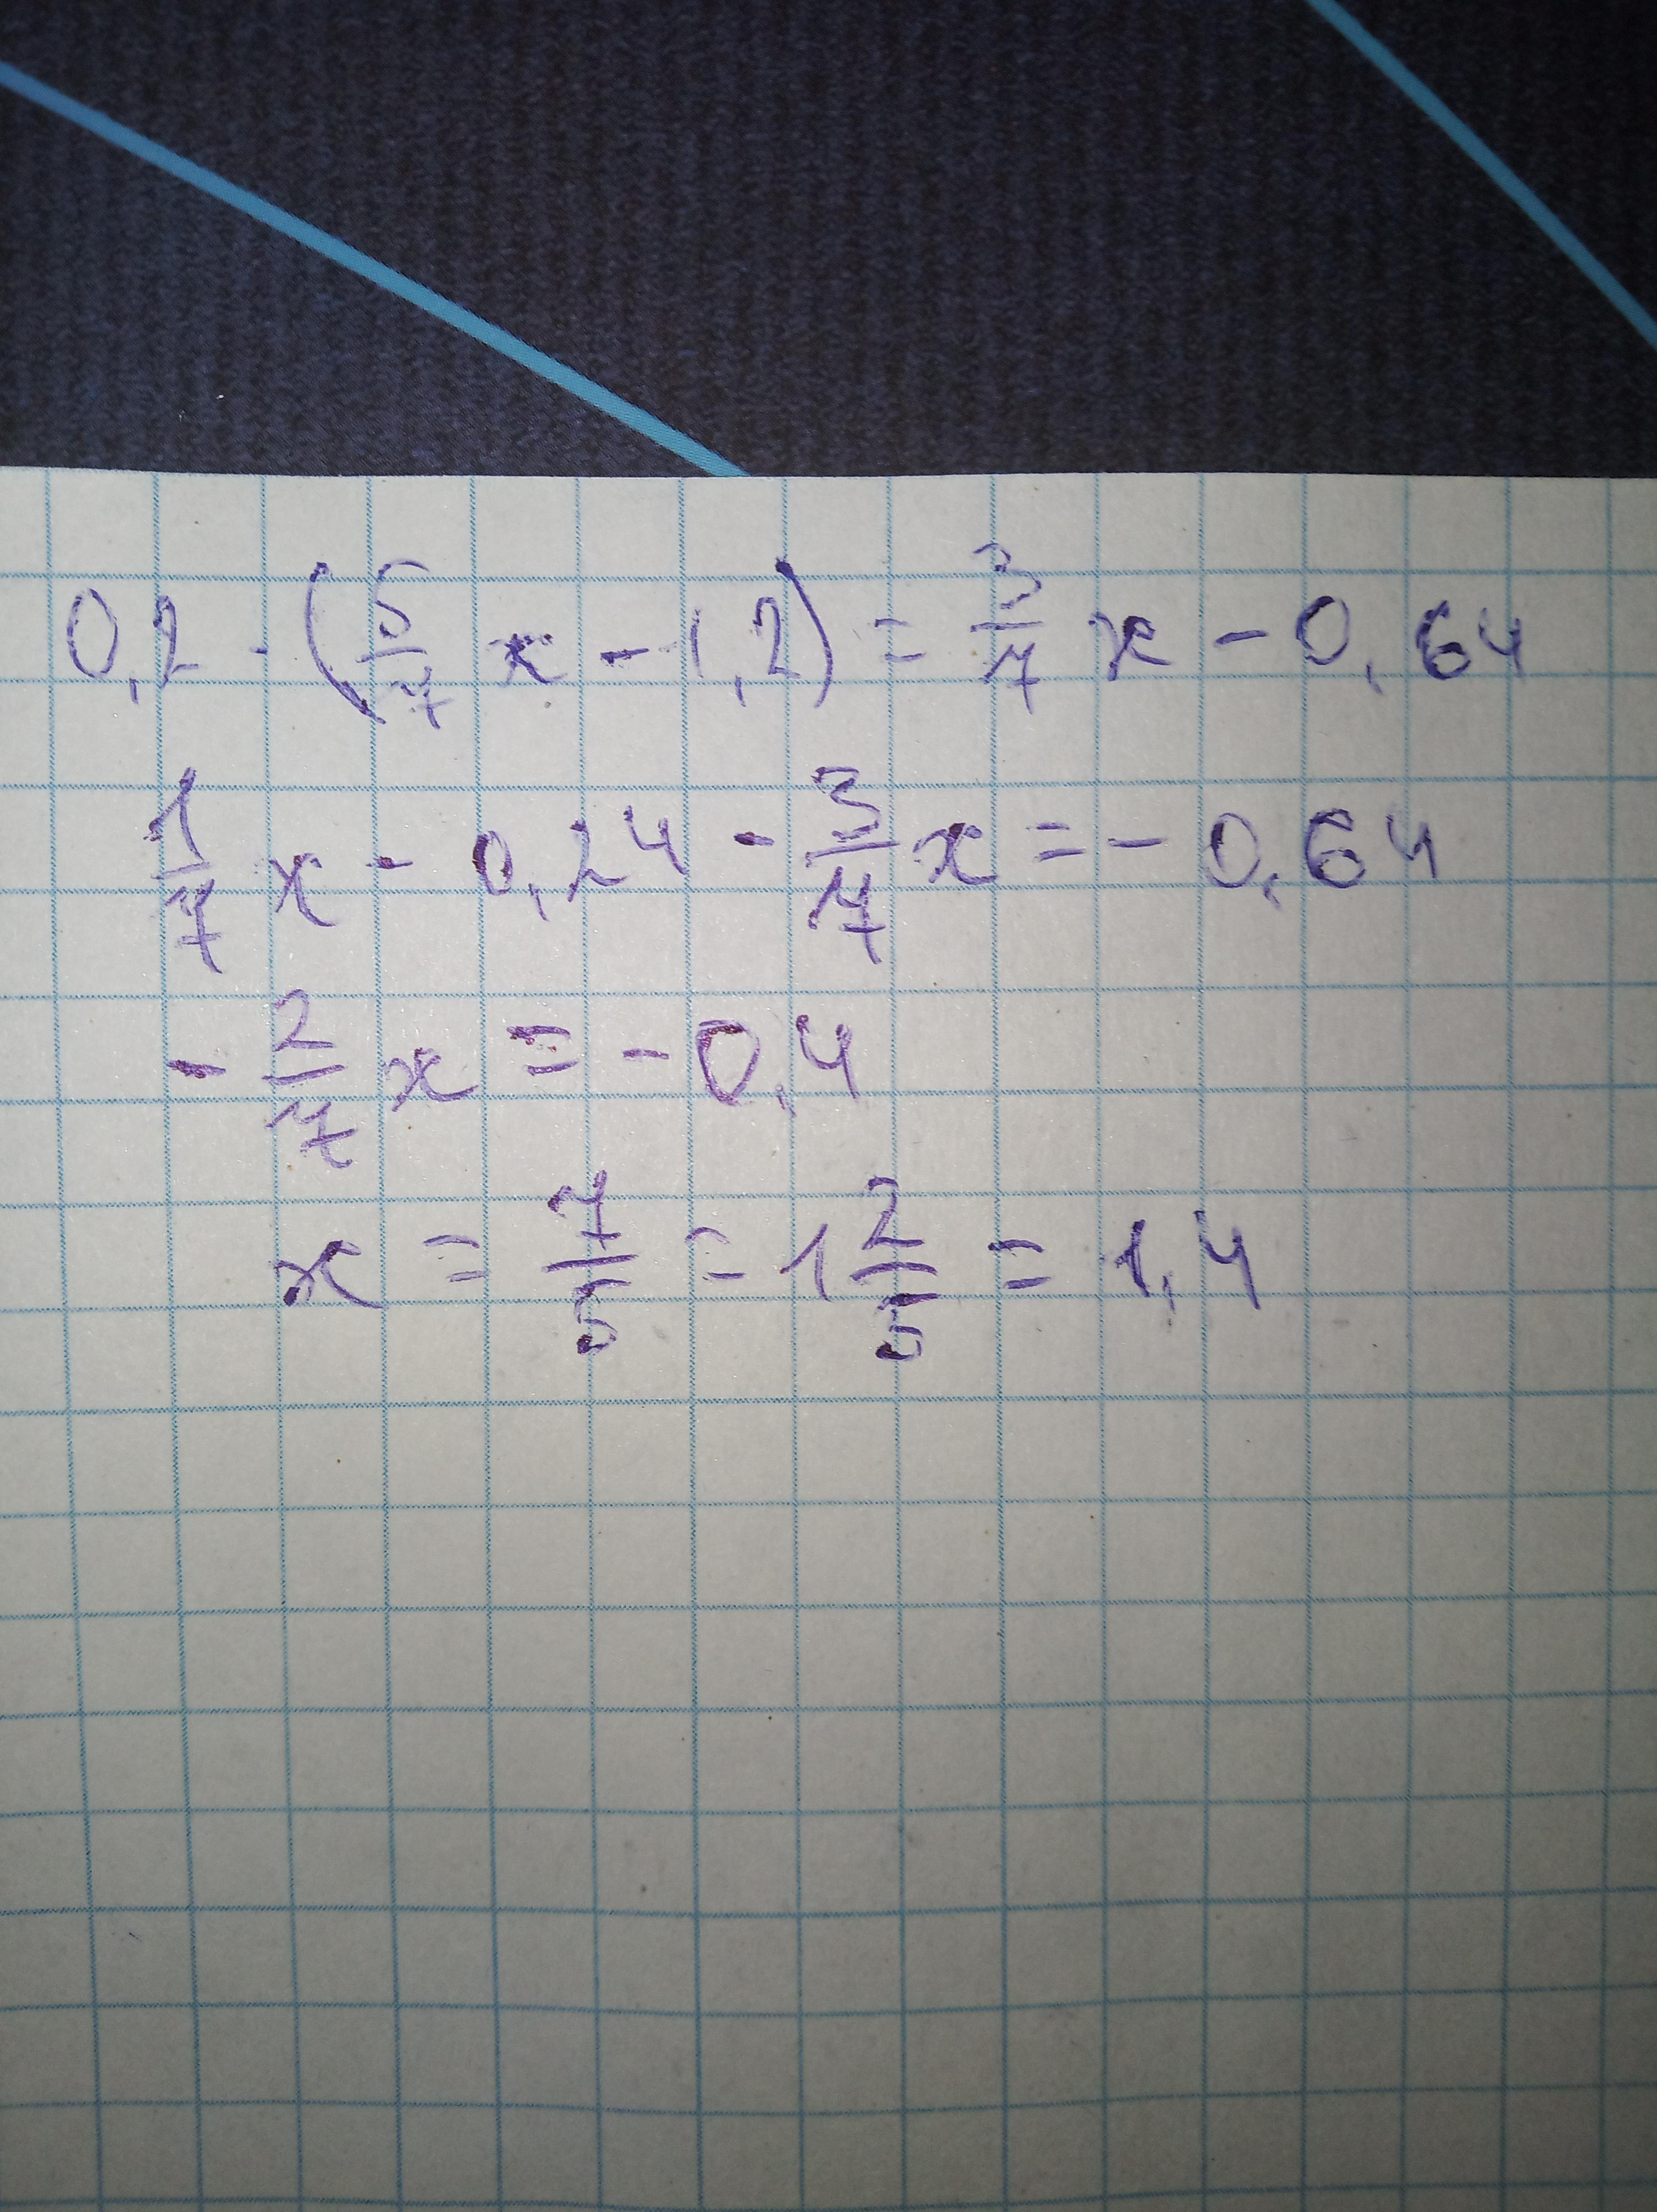 0,2 · (5/7 x - 1,2) = 3/7 x - 0,64
1/7 x - 0,24 - 3/7 x = - 0,64
- 2/7 x = - 0,4
x = 7/5 = 1 2/5 = 1,4